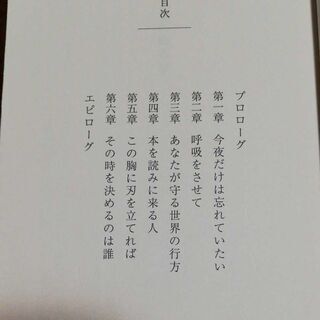 目次
プロローグ
第一章 今夜だけは忘れていたい
第二章 呼吸をさせて
第三章 あなたが守る世界の行方
第四章 本を読みに来る人
第五章 この胸に刃を立てれば
第六章 その時を決めるのは誰
エピローグ